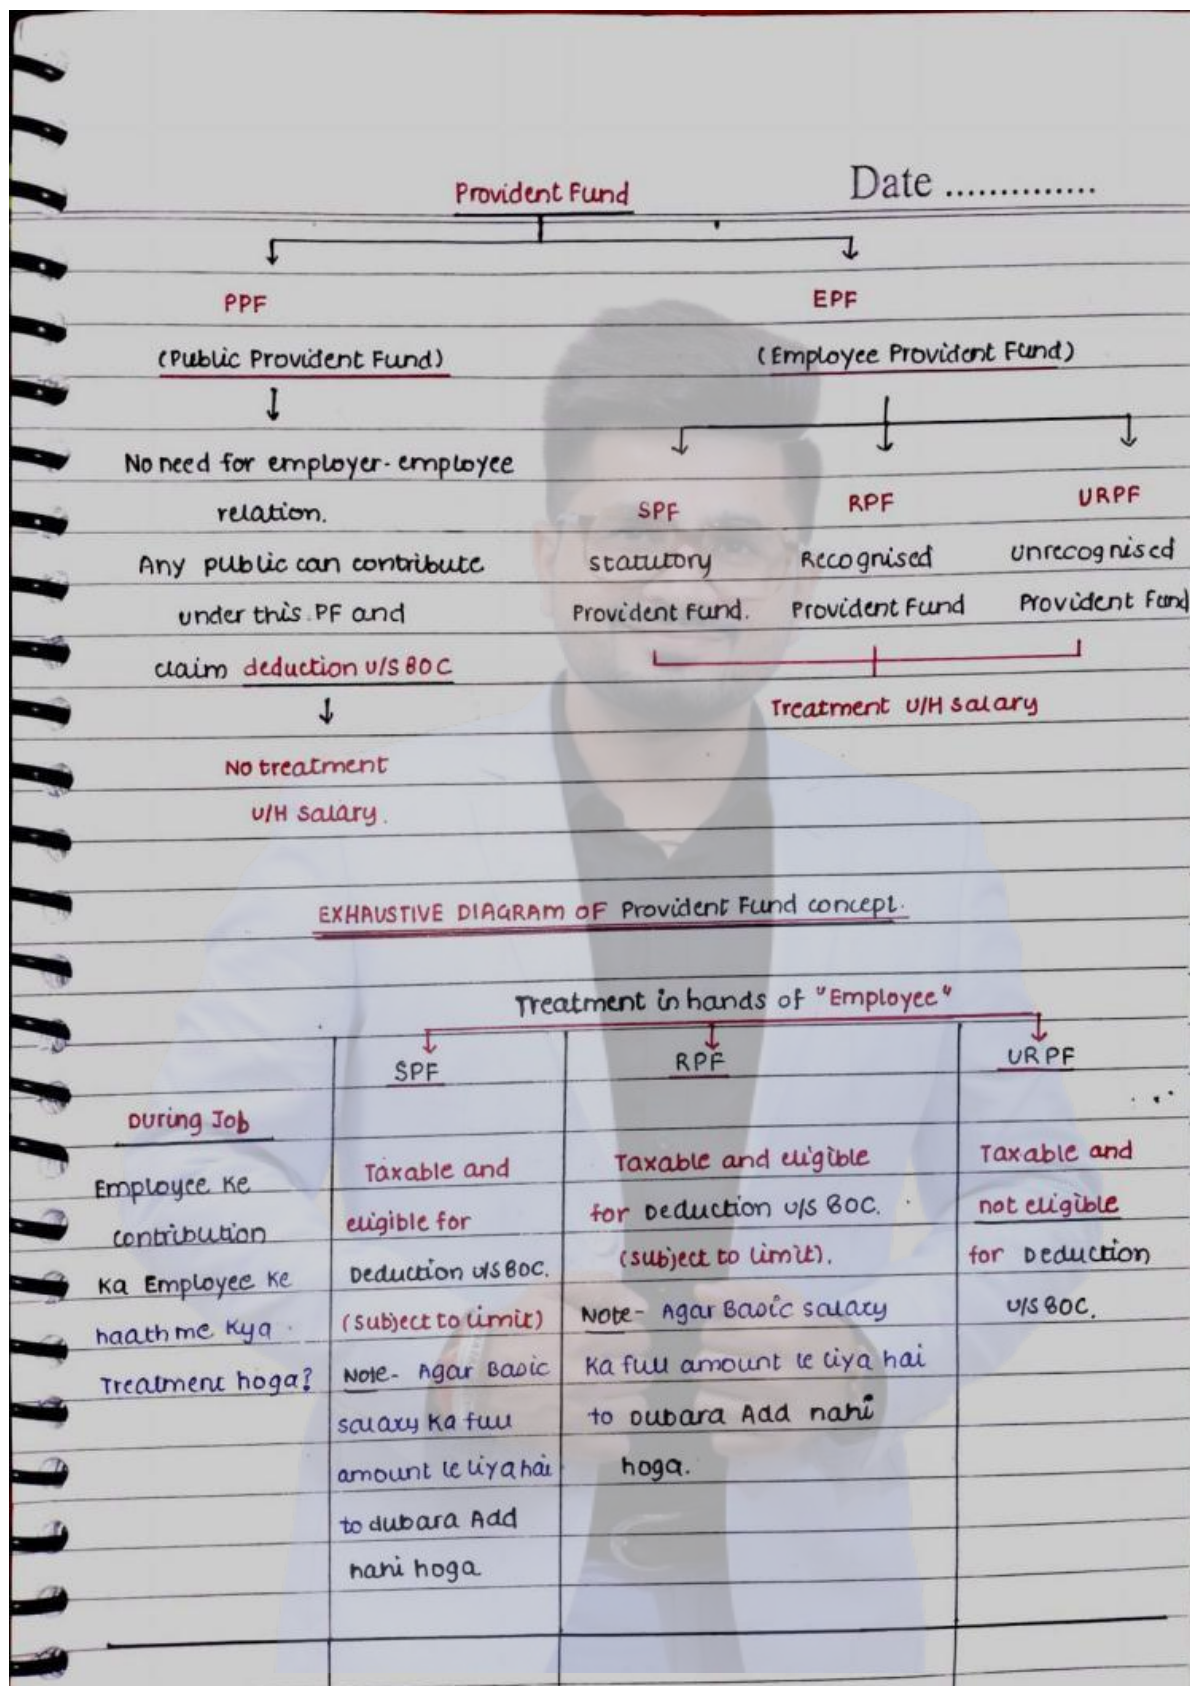 Date ..............
Provident Fund
PPF
(Public Provident Fund)
No need for employer-employee
relation.
Any public can contribute
under this PF and
claim deduction U/S 80C
No treatment
U/H Salary.
EPF
(Employee Provident Fund)
SPF
statutory
Provident Fund.
RPF
Recognised
Provident Fund
URPF
Unrecognised
Provident Fund
Treatment U/H Salary
EXHAUSTIVE DIAGRAM OF Provident Fund concept.
Treatment in hands of "Employee"
SPF
RPF
URPF
During Job
Employee Ke
contribution
Ka Employee Ke
haath me Kya
Treatment hoga?
Taxable and
eligible for
Deduction U/S 80C.
(Subject to limit)
Note- Agar Basic
salary Ka full
amount le liya hai
to dubara Add
nahi hoga
Taxable and eligible
for Deduction U/S 80C.
(Subject to limit).
Note- Agar Basic salary
Ka full amount le liya hai
to Dubara Add nahi
hoga.
Taxable and
not eligible
for Deduction
U/S 80C.